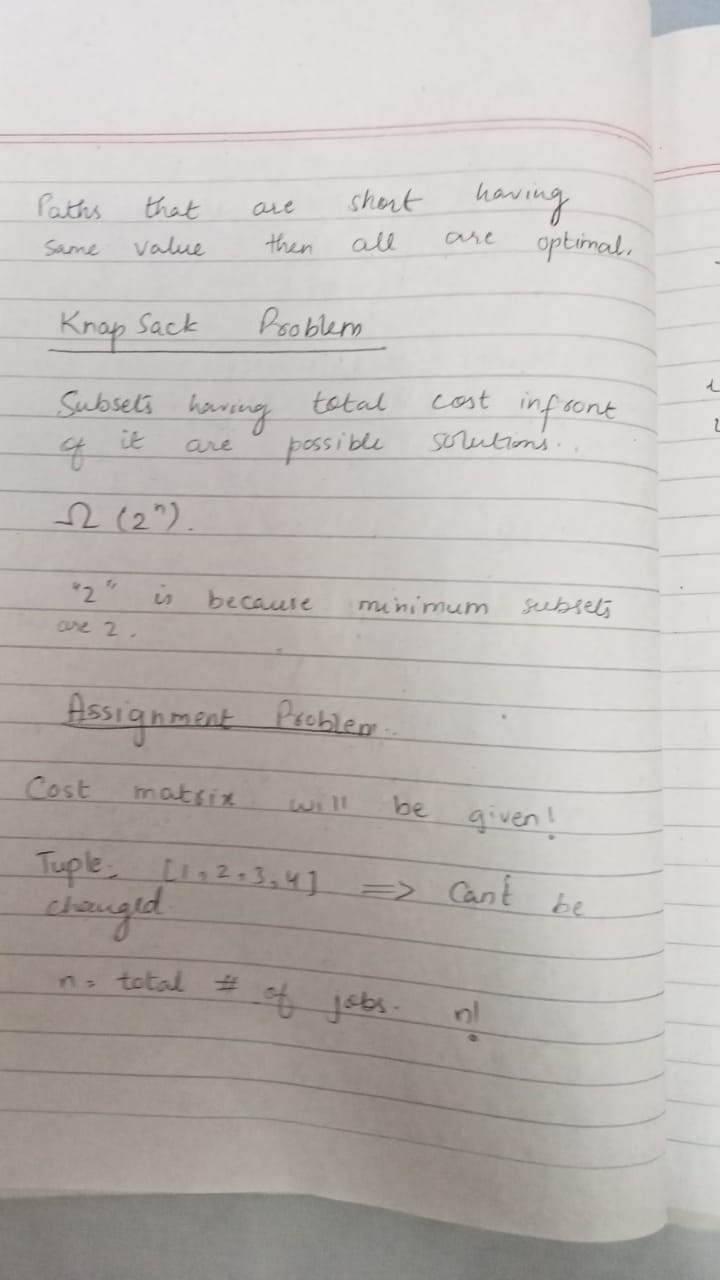 Paths that are short having
same value then all are optimal.
Knap Sack Problem
Subsets having total cost infront
of it are possible solutions..
Ω (2ⁿ).
"2" is because minimum subsets
are 2.
Assignment Problem..
Cost matrix will be given!
Tuple = [1,2,3,4] => Can't be
changed.
n = total # of jobs. n!